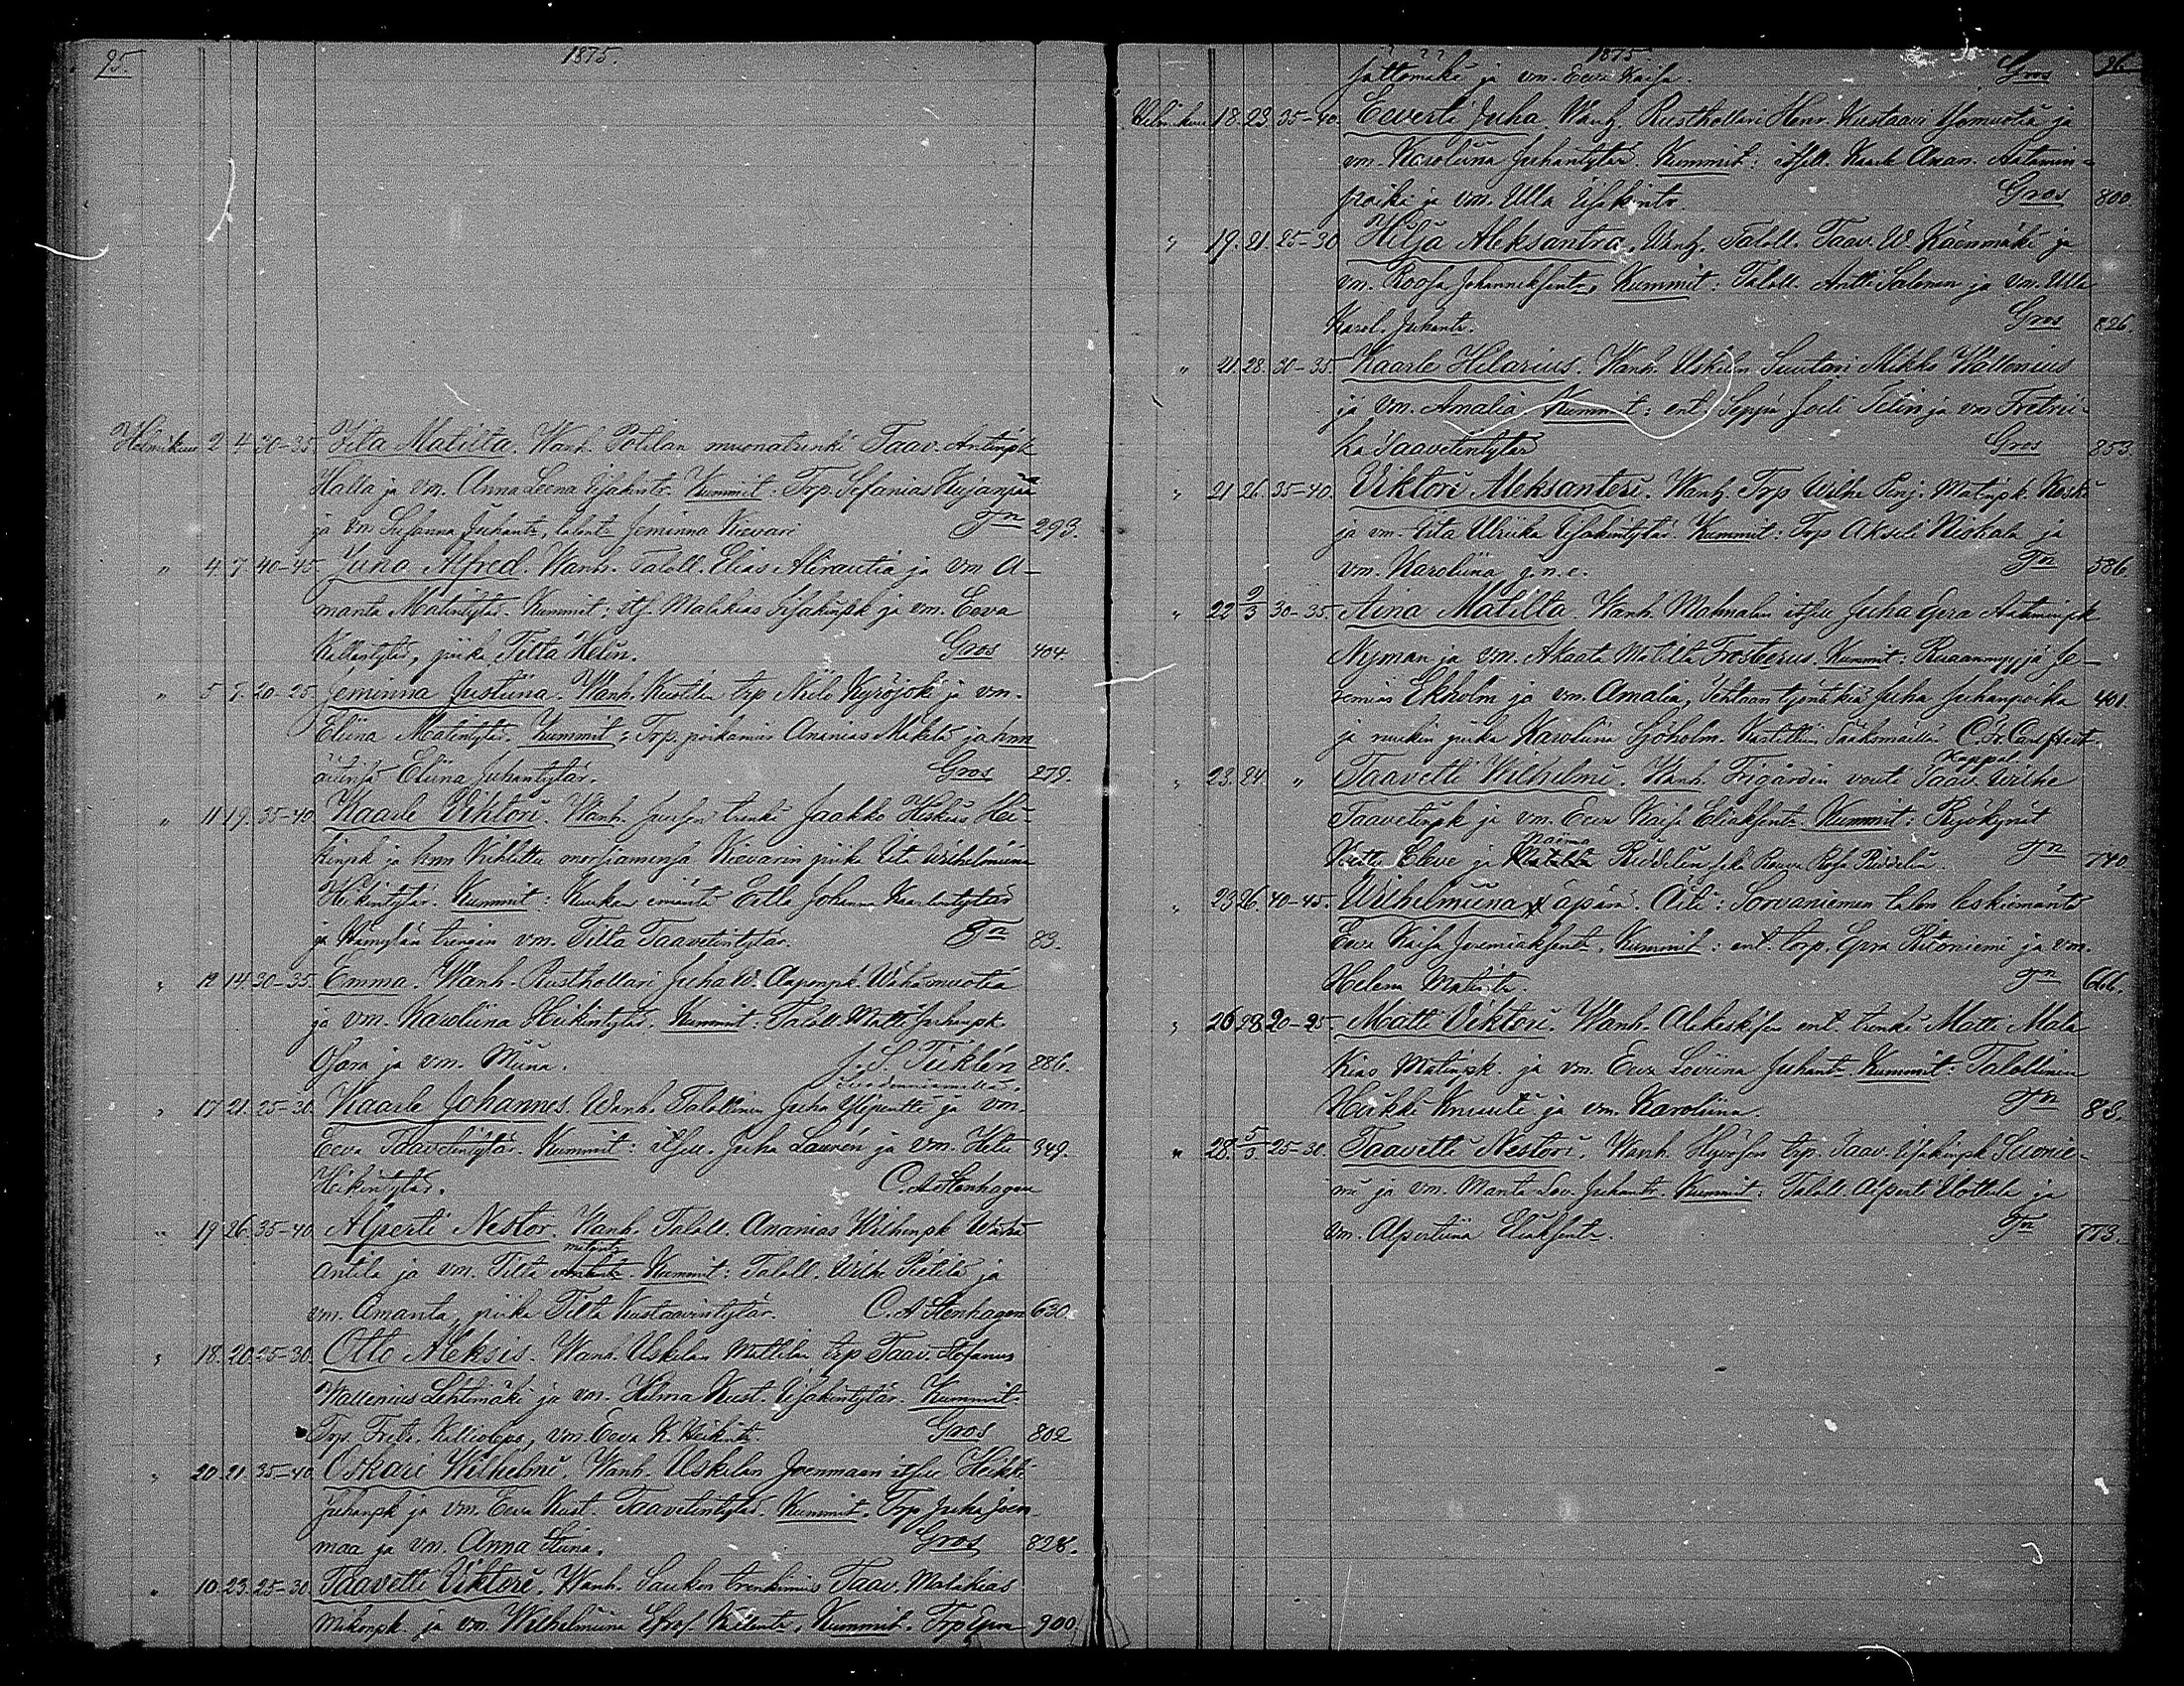 95. 1875.
Helmikuu 2 4. 30-35. Tilta Matilta. Wanh. Potilan muonatrenki Taav. Antinpk
Halla ja vm. Anna Leena Iisakintr. Kummit: Trp. Sefanias Kujanpää
ja vm Susanna Juhantr, talontr Jeminna Kievari Tn 293.
" 4. 7. 40-45 Juha Alfred. Wanh. Taloll. Elias Alirautia ja vm A-
manta Matintytär. Kummit: itf. Malakias Iisakinpk ja vm. Eeva
Kallentytär, piika Tilta Helin. Gros 404.
" 5 7. 20-25 Jeminna Justiina. Wanh. Kustila trp Niilo Kyröjoki ja vm.
Eliina Matintytär. Kummit: Trp. poikamies Ananias Mäkelä ja hnn
äitinsä Eliina Juhantytär. Gros 279.
" 11 19. 35-40. Kaarle Viktori. Wanh. trenki Jaakko Heskias Hei-
kinpk ja hnn Kihlattu morsiamensa Kievarin piika Iita Wilhelmiina
Heikintytär. Kummit: Kuukan emäntä Eetla Johanna Kaarlentytär
ja trengin vm. Tilta Taavetintytär. Tn 83.
" 12 14. 30-35. Emma. Wanh. Rusthollari Juha W. Aaponpk. Wähämuotia
ja vm. Karoliina Heikintytär. Kummit: Taloll. Matti Juhanpk.
Ojara ja vm. Miina. J. S. Ticklén 886.
" 17 21. 25-30. Kaarle Johannes. Wanh. Talollinen Juha Ylipentti ja vm.
Eeva Taavetintytär. Kummit: itsell. Juha Laurén ja vm. Heta 949.
Heikintytär. C. A Stenhagen
" 19 26. 35-40 Alperti Nestor. Wanh. Taloll. Ananias Wilhenpk Wähä
Antila ja vm. Tilta Matintr. Kummit: Taloll. Wilhe Pietilä ja
vm. Amanta, piika Tilta Kustaavintytär. C. A Stenhagen 630.
" 18. 20. 25-30. Otto Aleksis. Wanh. Uskilan Mattilan trp Taav. Stefanus
Wallenius Lehtimäki ja vm. Hilma Kust. Iisakintytär. Kummit:
Trp. Frets. Kalliolepo, vm. Eeva K. Heikintr. Gros 802
" 20 21. 35-40. Oskari Wilhelmi. Wanh. Uskilan Joenmaan itsell Heikki
Juhanpk ja vm. Eeva Kust. Taavetintytär. Kummit. Trp Juha Joen-
maa ja vm. Anna Stiina. Gros 828.
" 10. 23. 25-30. Taavetti Viktori. Wanh. Saukon trenkimies Taav. Malakias
Mikonpk. ja vm. Wilhelmiina Kallentr. Kummit. Trp Epra 900.
1875. 96
Jättömäki ja vm. Eeva Kaisa. Gros
Helmikuu 18. 23 35-40. Eeverti Juha. Wanh. Rusthollari Henr. Kustaavi Ylimuotia ja
vm. Karoliina Juhantytär. Kummit: itsell. Kaarle Anan. Aatamin-
poika ja vm. Ulla Iisakintr. Gros 800.
" 19. 21. 25-30 Hilja Aleksantra. Wanh. Taloll. Taav. W. Käenmäki ja
vm. Roosa Johanneksentr. Kummit: Taloll. Antti Salonen ja vm. Ulla
Karol. Juhantr. Gros 826.
" 21. 28. 30-35. Kaarle Hilarius. Wanh. Uskilan Suutari Mikko Wallenius
ja vm. Amalia Kummit: ent. Seppä Joeli Telin ja vm Fretrii-
ka Taavetintytär Gros 853.
" 21 26. 35-40. Viktori Aleksanteri. Wanh. Trp Wilhe Penj. Matinpk. Koski
ja vm. Iita Ulriika Iisakintytär. Kummit: Trp Akseli Niskala ja
vm. Karoliina g.n.e. Tn 586.
" 22 2/3 30-35. Aina Matilta. Wanh. Motmalan itsell Juha Epra Aataminpk
Nyman ja vm. Akaata Matilta Frosterus. Kummit: Ruaanmyyjä Je-
remias Ekholm ja vm. Amalia, Tehtaan työntekiä Juha Juhanpoika 401.
ja niinkin piika Karoliina Sjöholm. Kastettiin Sääksmäellä C. Fr. Carl
" 23. 24. " Taavetti Wilhelmi. Wanh. Frigårdin vouti Taav. Wilhe
Taavetinpk ja vm. Eeva Kaisa Eliaksentr. Kummit: Räjökynät
Kustu Cleve ja Naima Riddelin sekä Rouva Rosa Riddelin. Tn 740.
" 23 26. 40-45. Wilhelmiina äpärä. Äiti: Sorvaniemen talon leskiemäntä
Eeva Kaisa Jeremiaksentr. Kummit: ent. torp. Epra Riitaniemi ja vm.
Helena Matintr. Tn 666.
" 26 28 20-25. Matti Viktori. Wanh. ent. trenki Matti Mala
kias Matinpk. ja vm. Eeva Loviina Juhantr. Kummit: Talollinen
Heikki Knuuti ja vm. Karoliina. Tn 83.
" 28. 5/3 25-30. Taavetti Nestori. Wanh. trp. Taav. Iisakinpk Suonie-
mi ja vm. Manta Lov. Juhantr. Kummit: Taloll. Alperti Uottila ja
vm. Alpertiina Eliaksentr. Tn 773.